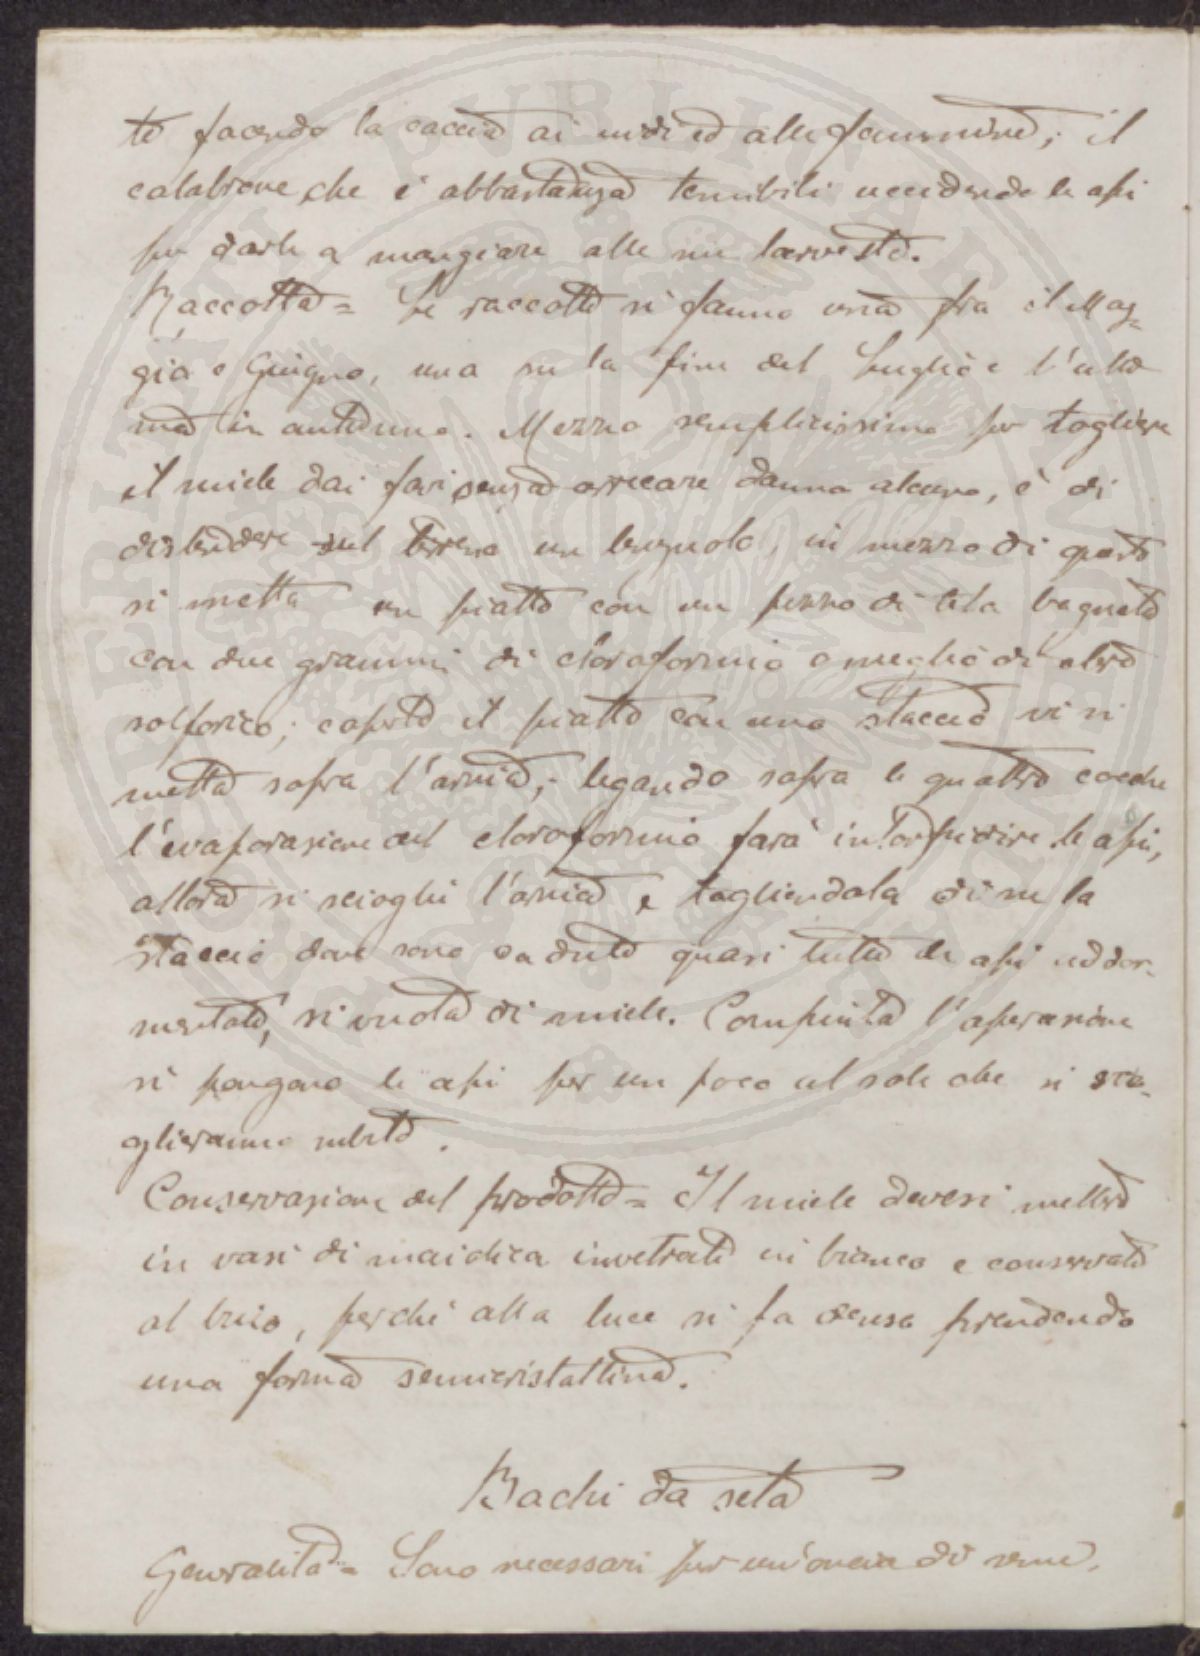 te facendo la caccia ai nidi ed alle femmine; il
calabrone che è abbastanza temibile uccidendo le api
per darle a mangiare alle sue larvette.
Raccolta = Le raccolte si fanno una fra il Mag=
gio e Giugno, una su la fine del Luglio e l'ulti
ma in autunno. Mezzo semplicissimo per togliere
il miele dai favi senza arrecare danno alcuno, è di
distendere sul terreno un lenzuolo, in mezzo di questo
si metta un piatto con un pezzo di tela bagnata
con due grammi di cloroformio o meglio di etere
solforico; coperto il piatto con uno staccio vi si
metta sopra l'arnia, legando sopra le quattro cocche
l'evaporazione del cloroformio farà intorpidire le api,
allora si scioglie l'arnia e togliendola di su lo
staccio dove sono cadute quasi tutte le api addor-
mentate, si vuota di miele. Compiuta l'operazione
si pongono le api per un poco al sole che si sve-
glieranno subito.
Conservazione del prodotto = Il miele devesi mettere
in vasi di maiolica invetriati in bianco e conservati
al buio, perché alla luce si fa denso prendendo
una forma semicristallina.
Bachi da seta
Generalità = Sono necessari per un'oncia di seme,
PUBLICAE